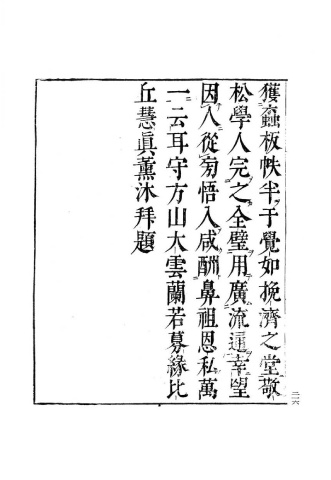 獲蠧板帙半于覺如挽濟之堂敬
松學人完之全璧用廣流通幸望
因入從茍悟入咸酬鼻祖恩私萬
一云耳守方山大雲蘭若募緣比
丘慧眞薰沐拜題
二一六